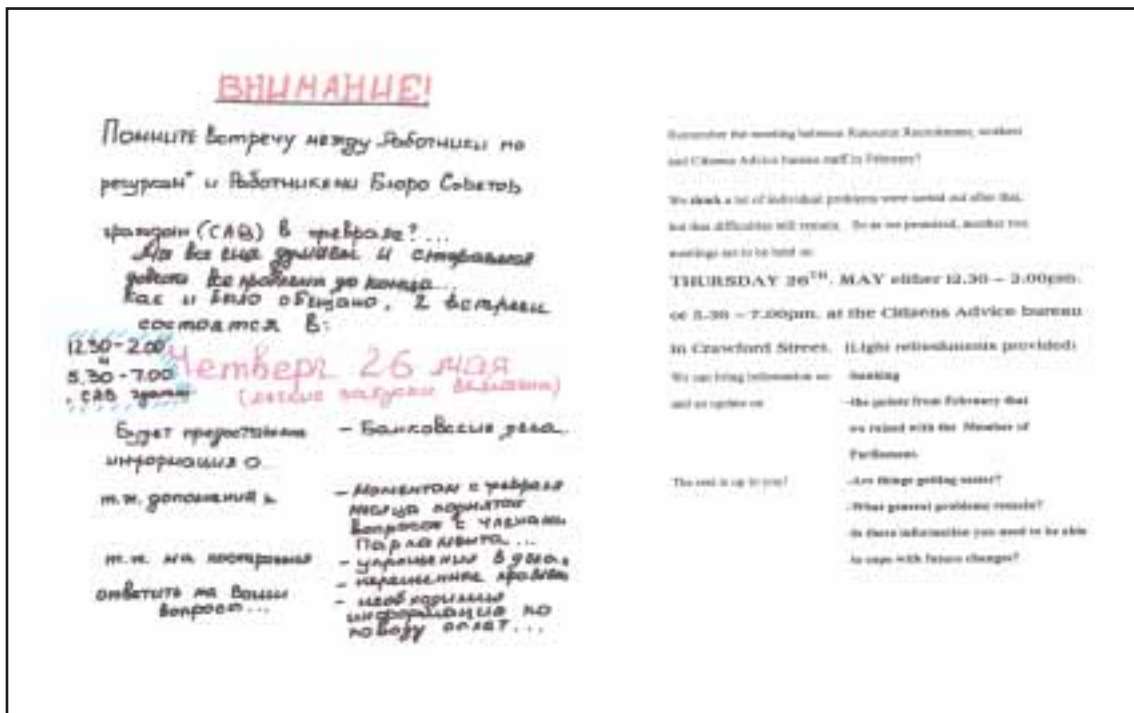 ВНИМАНИЕ!
Помните встречу между Работники по
ресурсам" и Работниками Бюро Советов
граждан (САВ) в феврале?...
Мы все еще думаем и стараемся
довести все проблемы до конца...
Как и было обещано, 2 встречи
состоятся в:
12.30-2.00
и
5.30-7.00
, САВ
Четверг 26 мая
(легкие закуски)
Будет предоставлена
информация о
т.ж. дополнений к
т.ж. мы постараемся
ответить на Ваши
вопросы...
- Банковские дела...
- моментам с февраля
месяца поднятой
вопросов с членами
Парламента...
- улучшения в делах
- нерешенные проблемы
- необходимая
информация по
поводу оплат...
Remember the meeting between Resource Recruitment, workers
and Citizens Advice bureau staff in February?
We think a lot of individual problems were sorted out after this,
but that difficulties still remain. So as we promised, another two
meetings are to be held on
THURSDAY 26TH. MAY either 12.30 – 2.00pm.
or 5.30 – 7.00pm. at the Citizens Advice bureau
in Crawford Street. (Light refreshments provided)
We can bring information on
and an update on
-banking
-the points from February that
we raised with the Member of
Parliament.
The rest is up to you!
-Are things getting easier?
-What general problems remain?
-Is there information you need to be able
to cope with future changes?